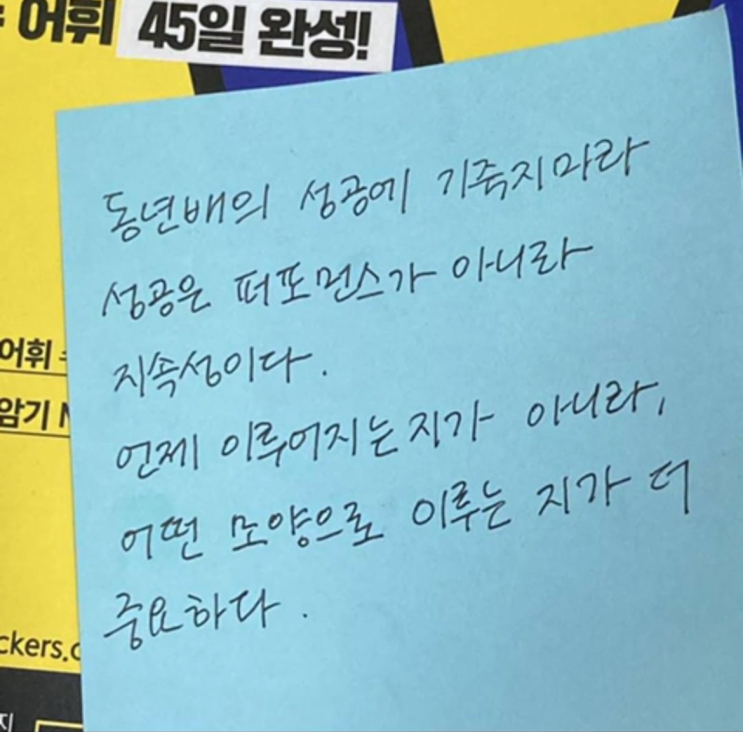 어휘 45일 완성!
동년배의 성공에 기죽지마라
성공은 퍼포먼스가 아니라
지속성이다.
언제 이루어지는지가 아니라,
어떤 모양으로 이루는 지가 더
중요하다.
어휘
암기
ckers.c
지